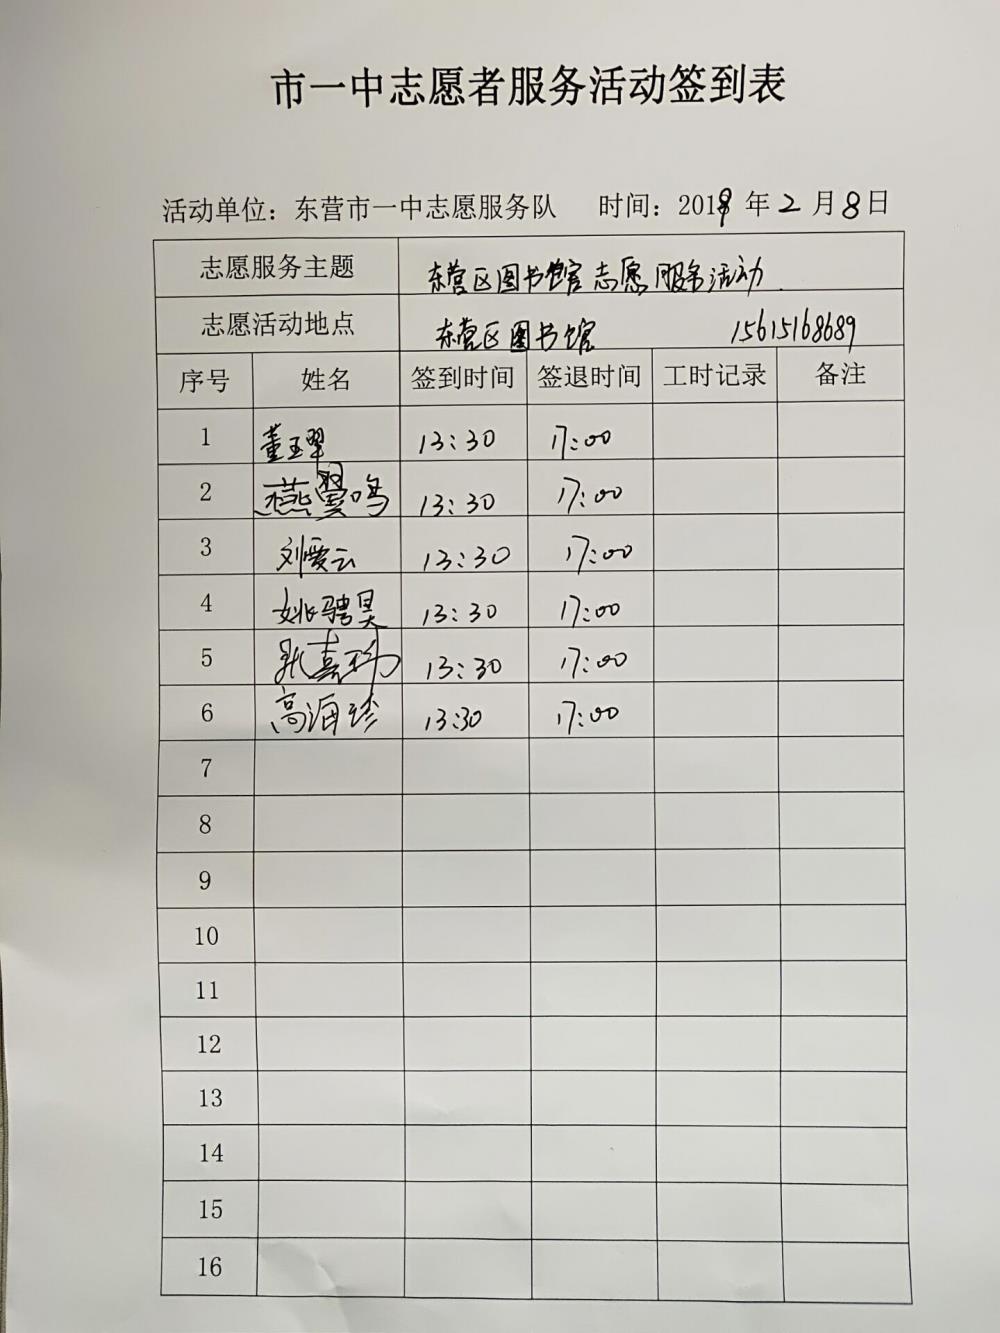 市一中志愿者服务活动签到表
活动单位：东营市一中志愿服务队 时间：2019 年 2 月 8 日
志愿服务主题 东营区图书馆志愿服务活动.
志愿活动地点 东营区图书馆 15615168689
序号 姓名 签到时间 签退时间 工时记录 备注
1 董玉翠 13:30 17:00
2 燕翼鸣 13:30 17:00
3 刘爱云 13:30 17:00
4 姚骋昊 13:30 17:00
5 张嘉 13:30 17:00
6 高海珍 13:30 17:00
7
8
9
10
11
12
13
14
15
16